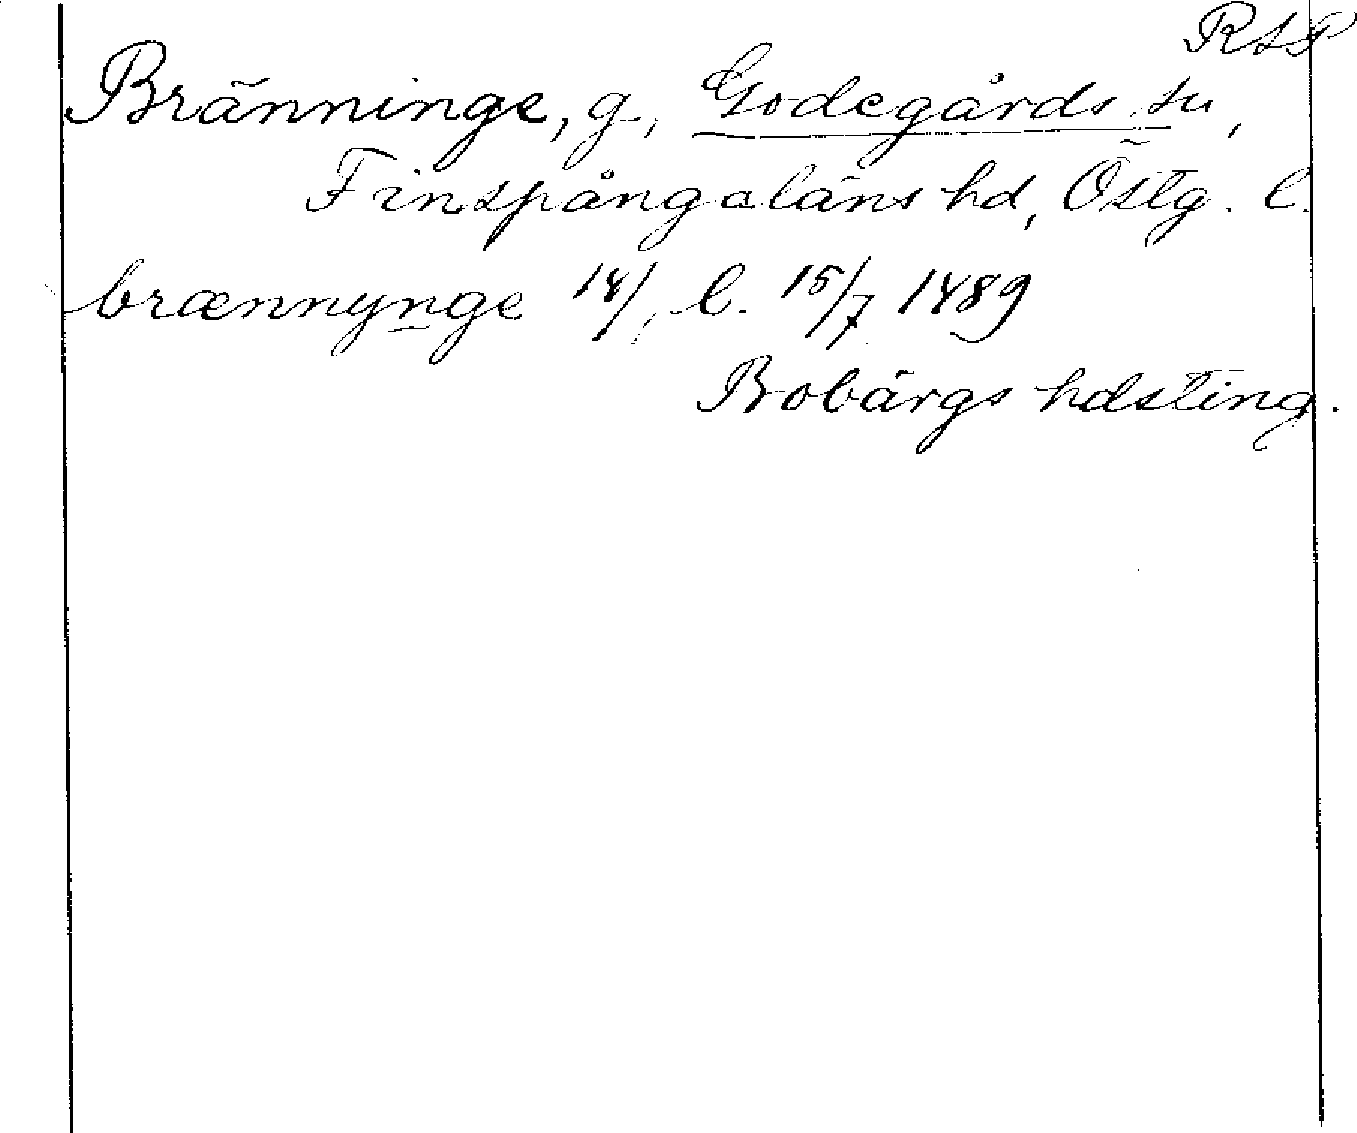 RAP
Bränninge, g, Godegårds sn,
Finspångaläns hd, Östg. l.
brænnynge 14/, l. 15/7 1489
Bobärgs hdsting.